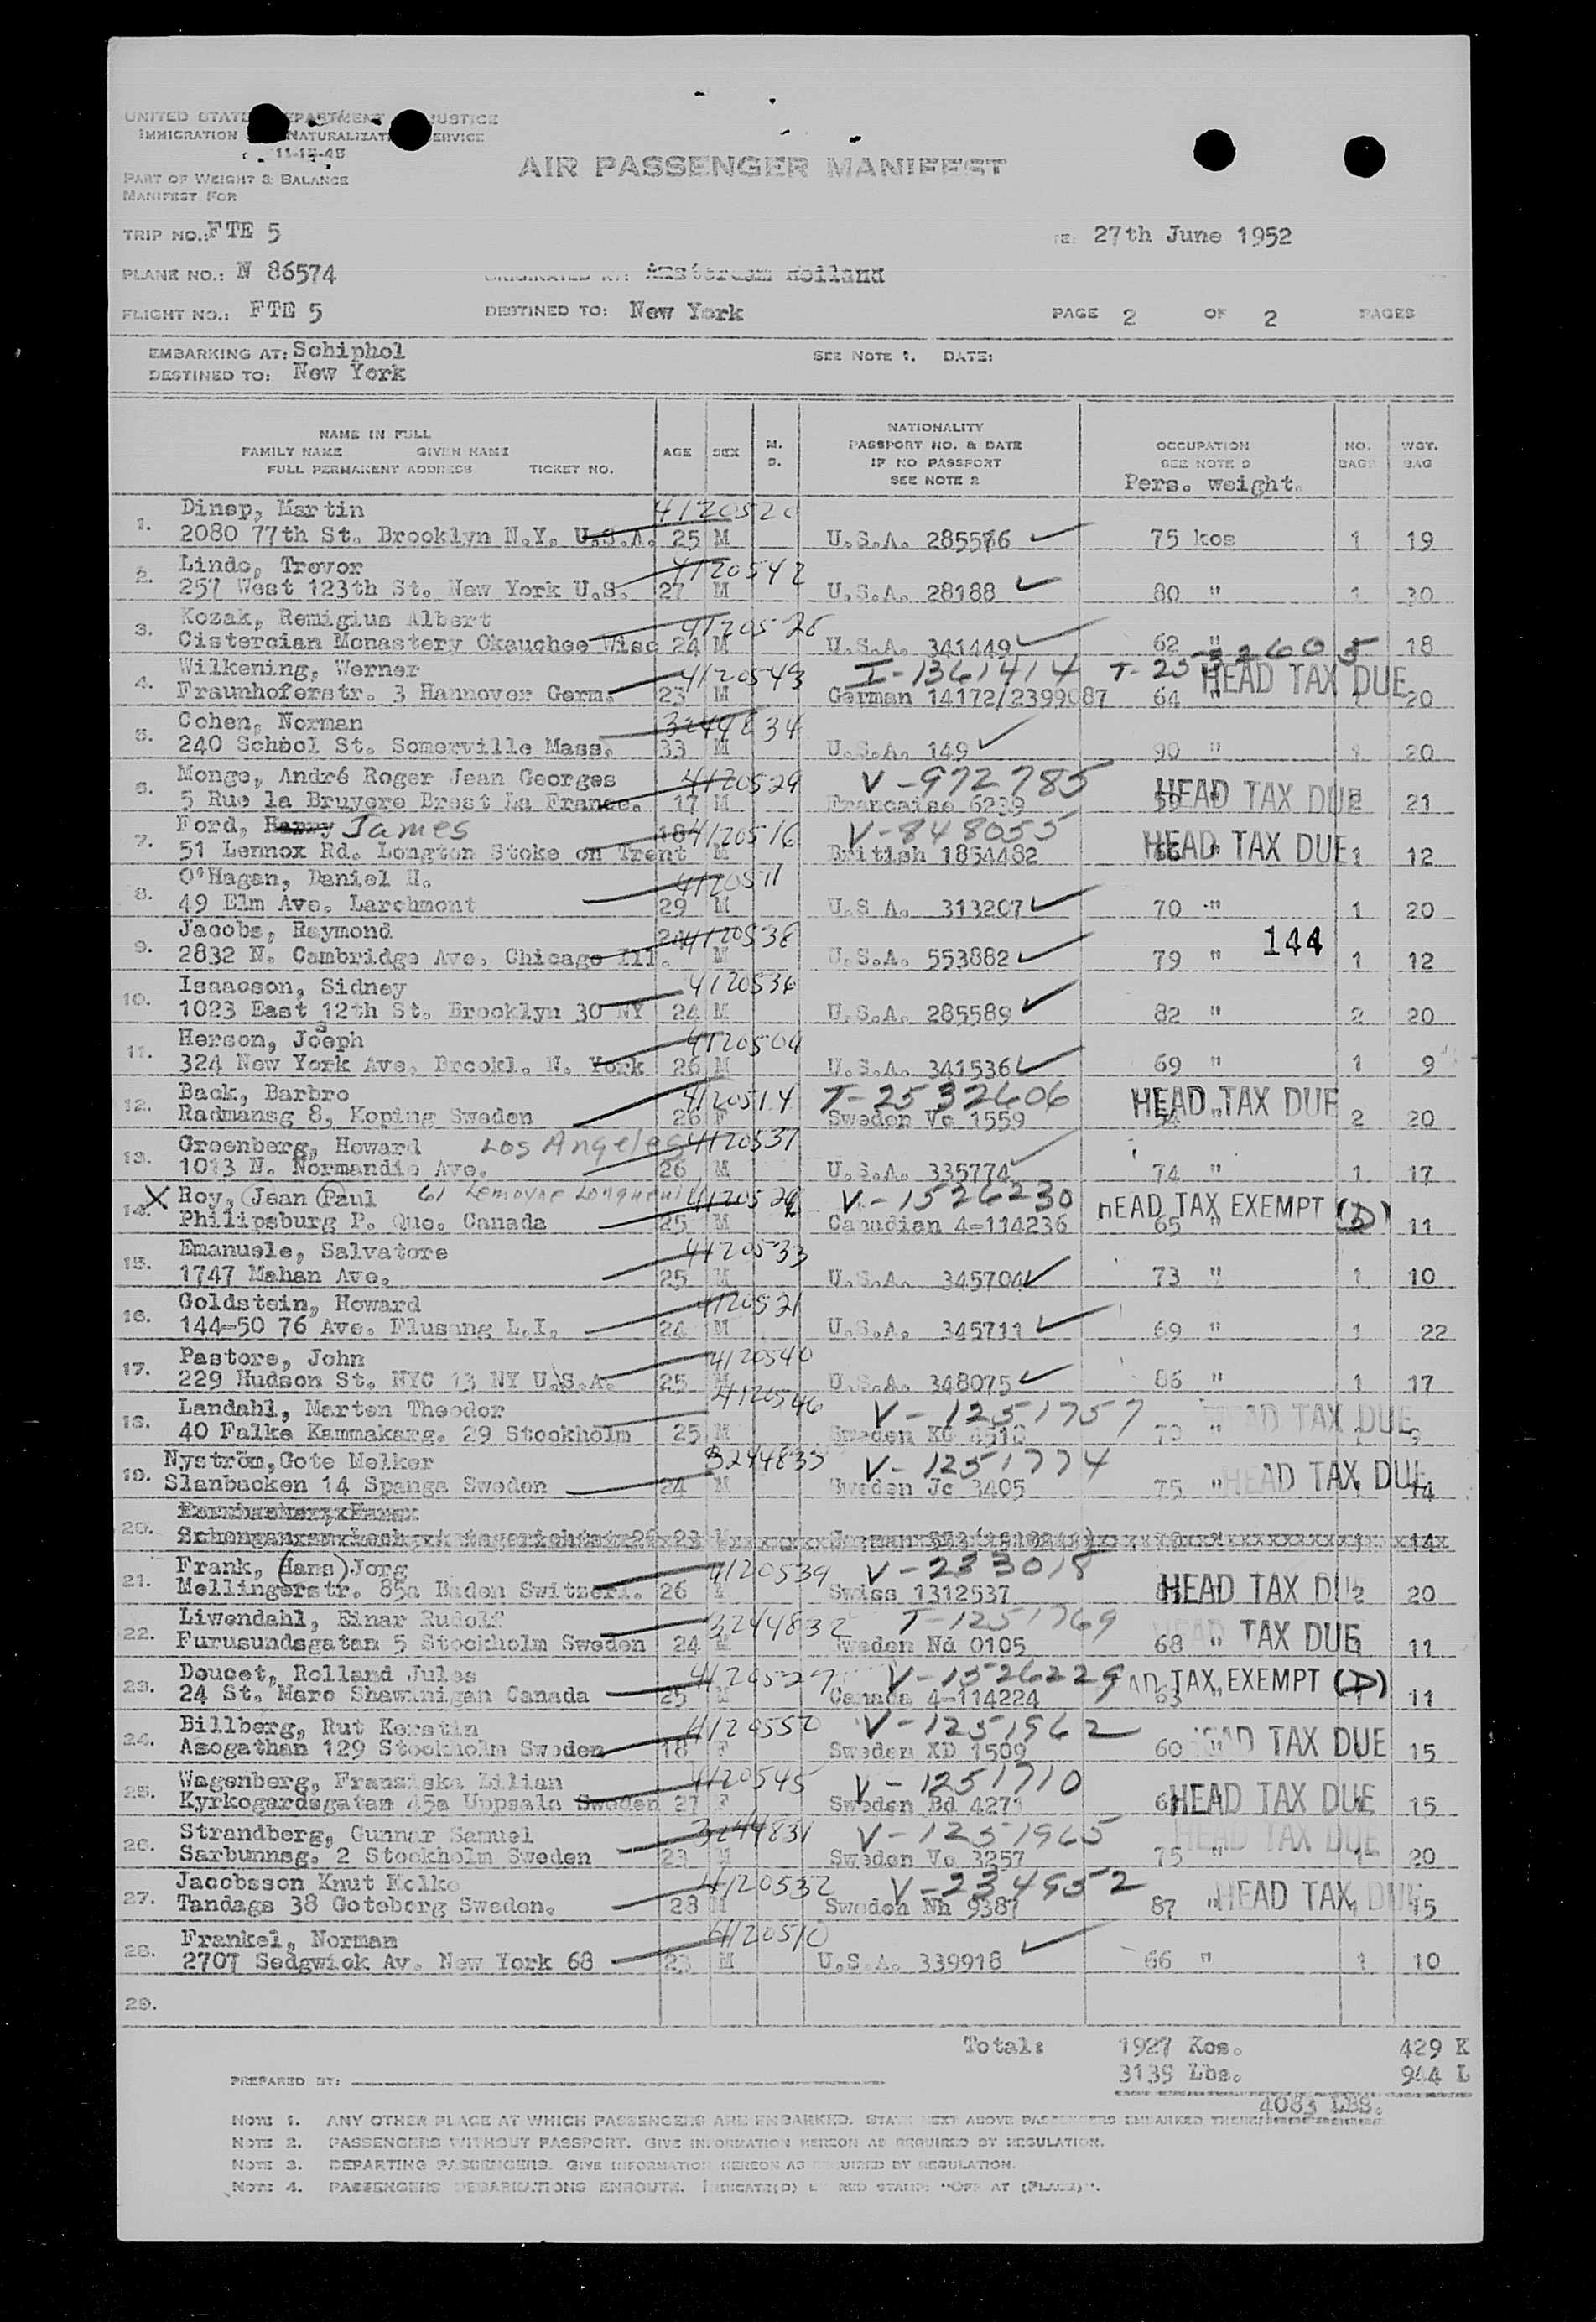 UNITED STATES DEPARTMENT JUSTICE
IMMIGRATION NATURALIZATION SERVICE
11-15-45
AIR PASSENGER MANIFEST
PART OF WEIGHT & BALANCE
MANIFEST FOR
TRIP NO.: FTE 5
27th June 1952
PLANE NO.: N 86574 ORIGINATED AT: Amsterdam Holland
FLIGHT NO.: FTE 5 DESTINED TO: New York PAGE 2 OF 2 PAGES
EMBARKING AT: Schiphol SEE NOTE 1. DATE:
DESTINED TO: New York
NAME IN FULL
FAMILY NAME GIVEN NAME
FULL PERMANENT ADDRESS TICKET NO.
AGE SEX M. S.
NATIONALITY
PASSPORT NO. & DATE
IF NO PASSPORT
SEE NOTE 2
OCCUPATION
SEE NOTE 3
Pers. weight.
NO. BAGS
WGT. BAG
1. Dinep, Martin 4120520
2080 77th St. Brooklyn N.Y. U.S.A. 25 M U.S.A. 285576 75 kos 1 19
2. Lindo, Trevor 4120542
257 West 123th St. New York U.S. 27 M U.S.A. 28188 80 " 1 30
3. Kozak, Remigius Albert 4120526
Cistercian Monastery Okauchee Wisc 24 M U.S.A. 341449 62 " 18
4. Wilkening, Werner 4120543 I-1361414 T-2532605 HEAD TAX DUE
Fraunhoferstr. 3 Hannover Germ. 23 M German 14172/2399087 64 " 1 20
5. Cohen, Norman 3244834
240 School St. Somerville Mass. 33 M U.S.A. 149 90 " 1 20
6. Monge, André Roger Jean Georges 4120529 V-972785 HEAD TAX DUE
5 Rue la Bruyere Brest La France. 17 M Francaise 6239 59 2 21
7. Ford, Harry James 18 4120516 V-848055 HEAD TAX DUE
51 Lennox Rd. Longton Stoke on Trent M British 1854482 66 " 1 12
8. O'Hagan, Daniel H. 4120511
49 Elm Ave. Larchmont 29 M U.S A. 313207 70 " 1 20
9. Jacobs, Raymond 24 4120538 144
2832 N. Cambridge Ave. Chicago Ill. M U.S.A. 553882 79 " 1 12
10. Isaacson, Sidney 4120536
1023 East 12th St. Brooklyn 30 NY 24 M U.S.A. 285589 82 " 2 20
11. Herson, Joseph 4120504
324 New York Ave. Brookl. N. York 26 M U.S.A. 341536 69 " 1 9
12. Back, Barbro 4120514 T-2532606 HEAD TAX DUE
Radmansg 8, Koping Sweden 26 F Sweden Vc 1559 54 " 2 20
13. Greenberg, Howard Los Angeles 4120537
1013 N. Normandie Ave. 26 M U.S.A. 335774 74 " 1 17
X 14. Roy, Jean Paul 61 Lemoyne Longueuil V-1526230 HEAD TAX EXEMPT (D)
Philipsburg P. Que. Canada 25 M Canadian 4-114236 65 " 11
15. Emanuele, Salvatore 4120533
1747 Mahan Ave. 25 M U.S.A. 345704 73 " 1 10
16. Goldstein, Howard 4120521
144-50 76 Ave. Flusang L.I. 24 M U.S.A. 345711 69 " 1 22
17. Pastore, John 4120540
229 Hudson St. NYC 13 NY U.S.A. 25 M U.S.A. 348075 86 " 1 17
18. Landahl, Marten Theodor 4120546 V-1251757 HEAD TAX DUE
40 Falke Kammakarg. 29 Stockholm 25 M Sweden 9
19. Nyström, Gote Melker 3244835 V-1251774 HEAD TAX DUE
Slanbacken 14 Spanga Sweden 24 M Sweden Jc 3405 75 " 14
20. 23 1 14
21. Frank, (Hans) Jorg 4120539 V-233018 HEAD TAX DUE
Mellingerstr. 85a Baden Switzerl. 26 M Swiss 1312537 2 20
22. Liwendahl, Einar Rudolf 3244832 T-1251769 HEAD TAX DUE
Furusundsgatan 5 Stockholm Sweden 24 M Sweden Nd 0105 68 " 11
23. Doucet, Rolland Jules 4120527 V-1526229 HEAD TAX EXEMPT (D)
24 St. Marc Shawinigan Canada 25 M Canada 4-114224 63 " 1 11
24. Billberg, Rut Kerstin 4120550 V-1251962 HEAD TAX DUE
Asogathan 129 Stockholm Sweden 18 F Sweden XD 1509 60 " 15
25. Wagenberg, Franziska Lilian 4120545 V-1251710 HEAD TAX DUE
Kyrkogardsgatan 45a Uppsala Sweden 27 F Sweden Bd 4271 15
26. Strandberg, Gunnar Samuel 3244831 V-1251965 HEAD TAX DUE
Sarbunnsg. 2 Stockholm Sweden 23 M Sweden Vc 3257 75 " 1 20
27. Jacobsson Knut Holke 4120532 V-234952 HEAD TAX DUE
Tandags 38 Goteborg Sweden. 28 M Sweden Nh 9387 87 " 1 15
28. Frankel, Norman 4120510
2707 Sedgwick Av. New York 68 23 M U.S.A. 339918 66 " 1 10
29.
Total: 1927 Kos. 429 K
3139 Lbs. 944 L
4083 LBS.
PREPARED BY:
NOTE 1. ANY OTHER PLACE AT WHICH PASSENGERS ARE EMBARKED. STATE NEXT ABOVE PASSENGERS EMBARKED
NOTE 2. PASSENGERS WITHOUT PASSPORT. GIVE INFORMATION HEREON AS REQUIRED BY REGULATION.
NOTE 3. DEPARTING PASSENGERS. GIVE INFORMATION HEREON AS REQUIRED BY REGULATION.
NOTE 4. PASSENGERS DEBARKATIONS ENROUTE. INDICATE(D) BY RED STAMP: "OFF AT (PLACE)".